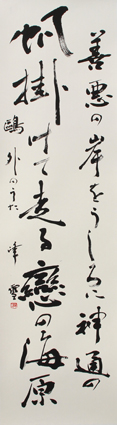 善悪の岸をうしろに神通の
帆掛けて走る戀の海原
鷗外のうた